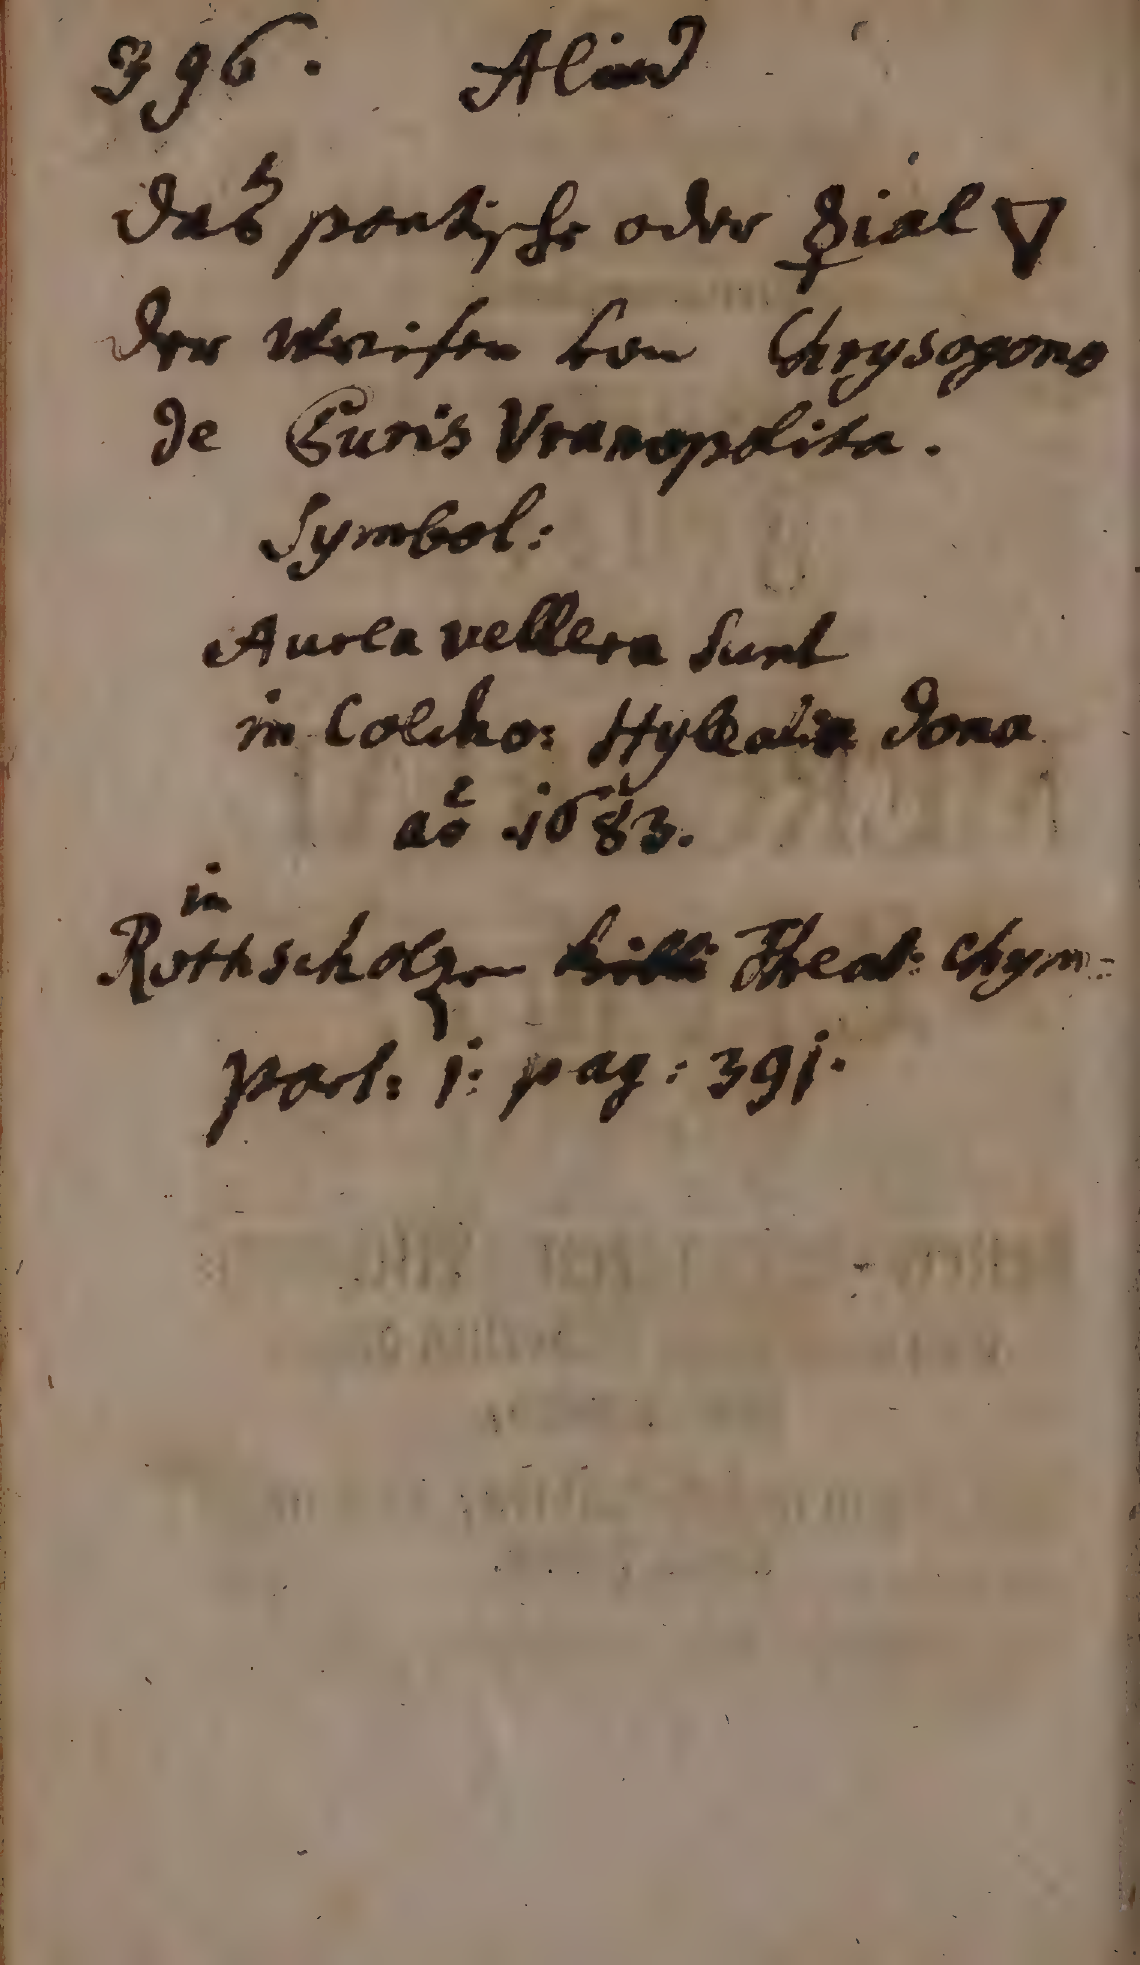 396. Aliud
Das pontische oder ☿ial ▽
der Weisen von Chrysogono
de Puris Vranopolita.
Symbol:
Aurea vellera sunt
in Colcho: dona
ao 1683.
in
Rothscholzen Theat: Chym:
part: 1: pag: 391.